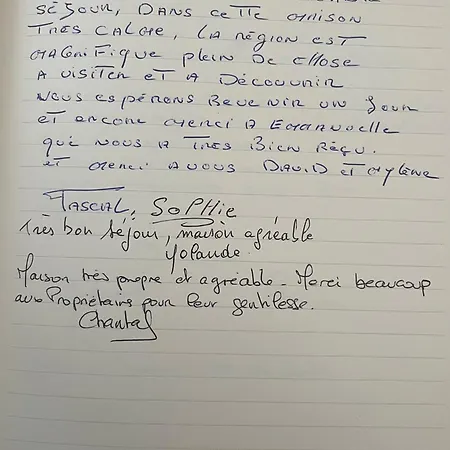 SÉJOUR, DANS CETTE MAISON
TRES CALME, LA RÉGION EST
MAGNIFIQUE PLEIN DE CHOSE
A VISITER ET A DÉCOUVRIR
NOUS ESPÉRONS REVENIR UN JOUR
ET ENCORE MERCI A EMMANUELLE
QUI NOUS A TRES BIEN REÇU.
ET MERCI A VOUS DAVID ET MYLÈNE
PASCAL, SOPHIE
Très bon séjour, maison agréable
Yolande.
Maison très propre et agréable. Merci beaucoup
aux Propriétaires pour leur gentillesse.
Chantal